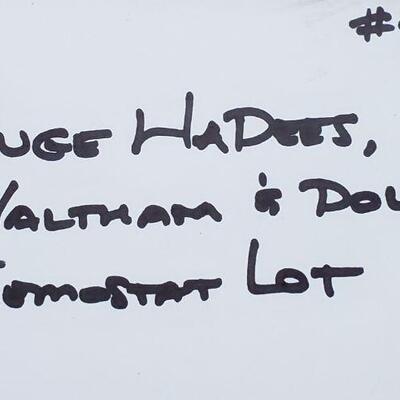 #
UGE HADEES,
WALTHAM & DOL
TOMOSTAT LOT